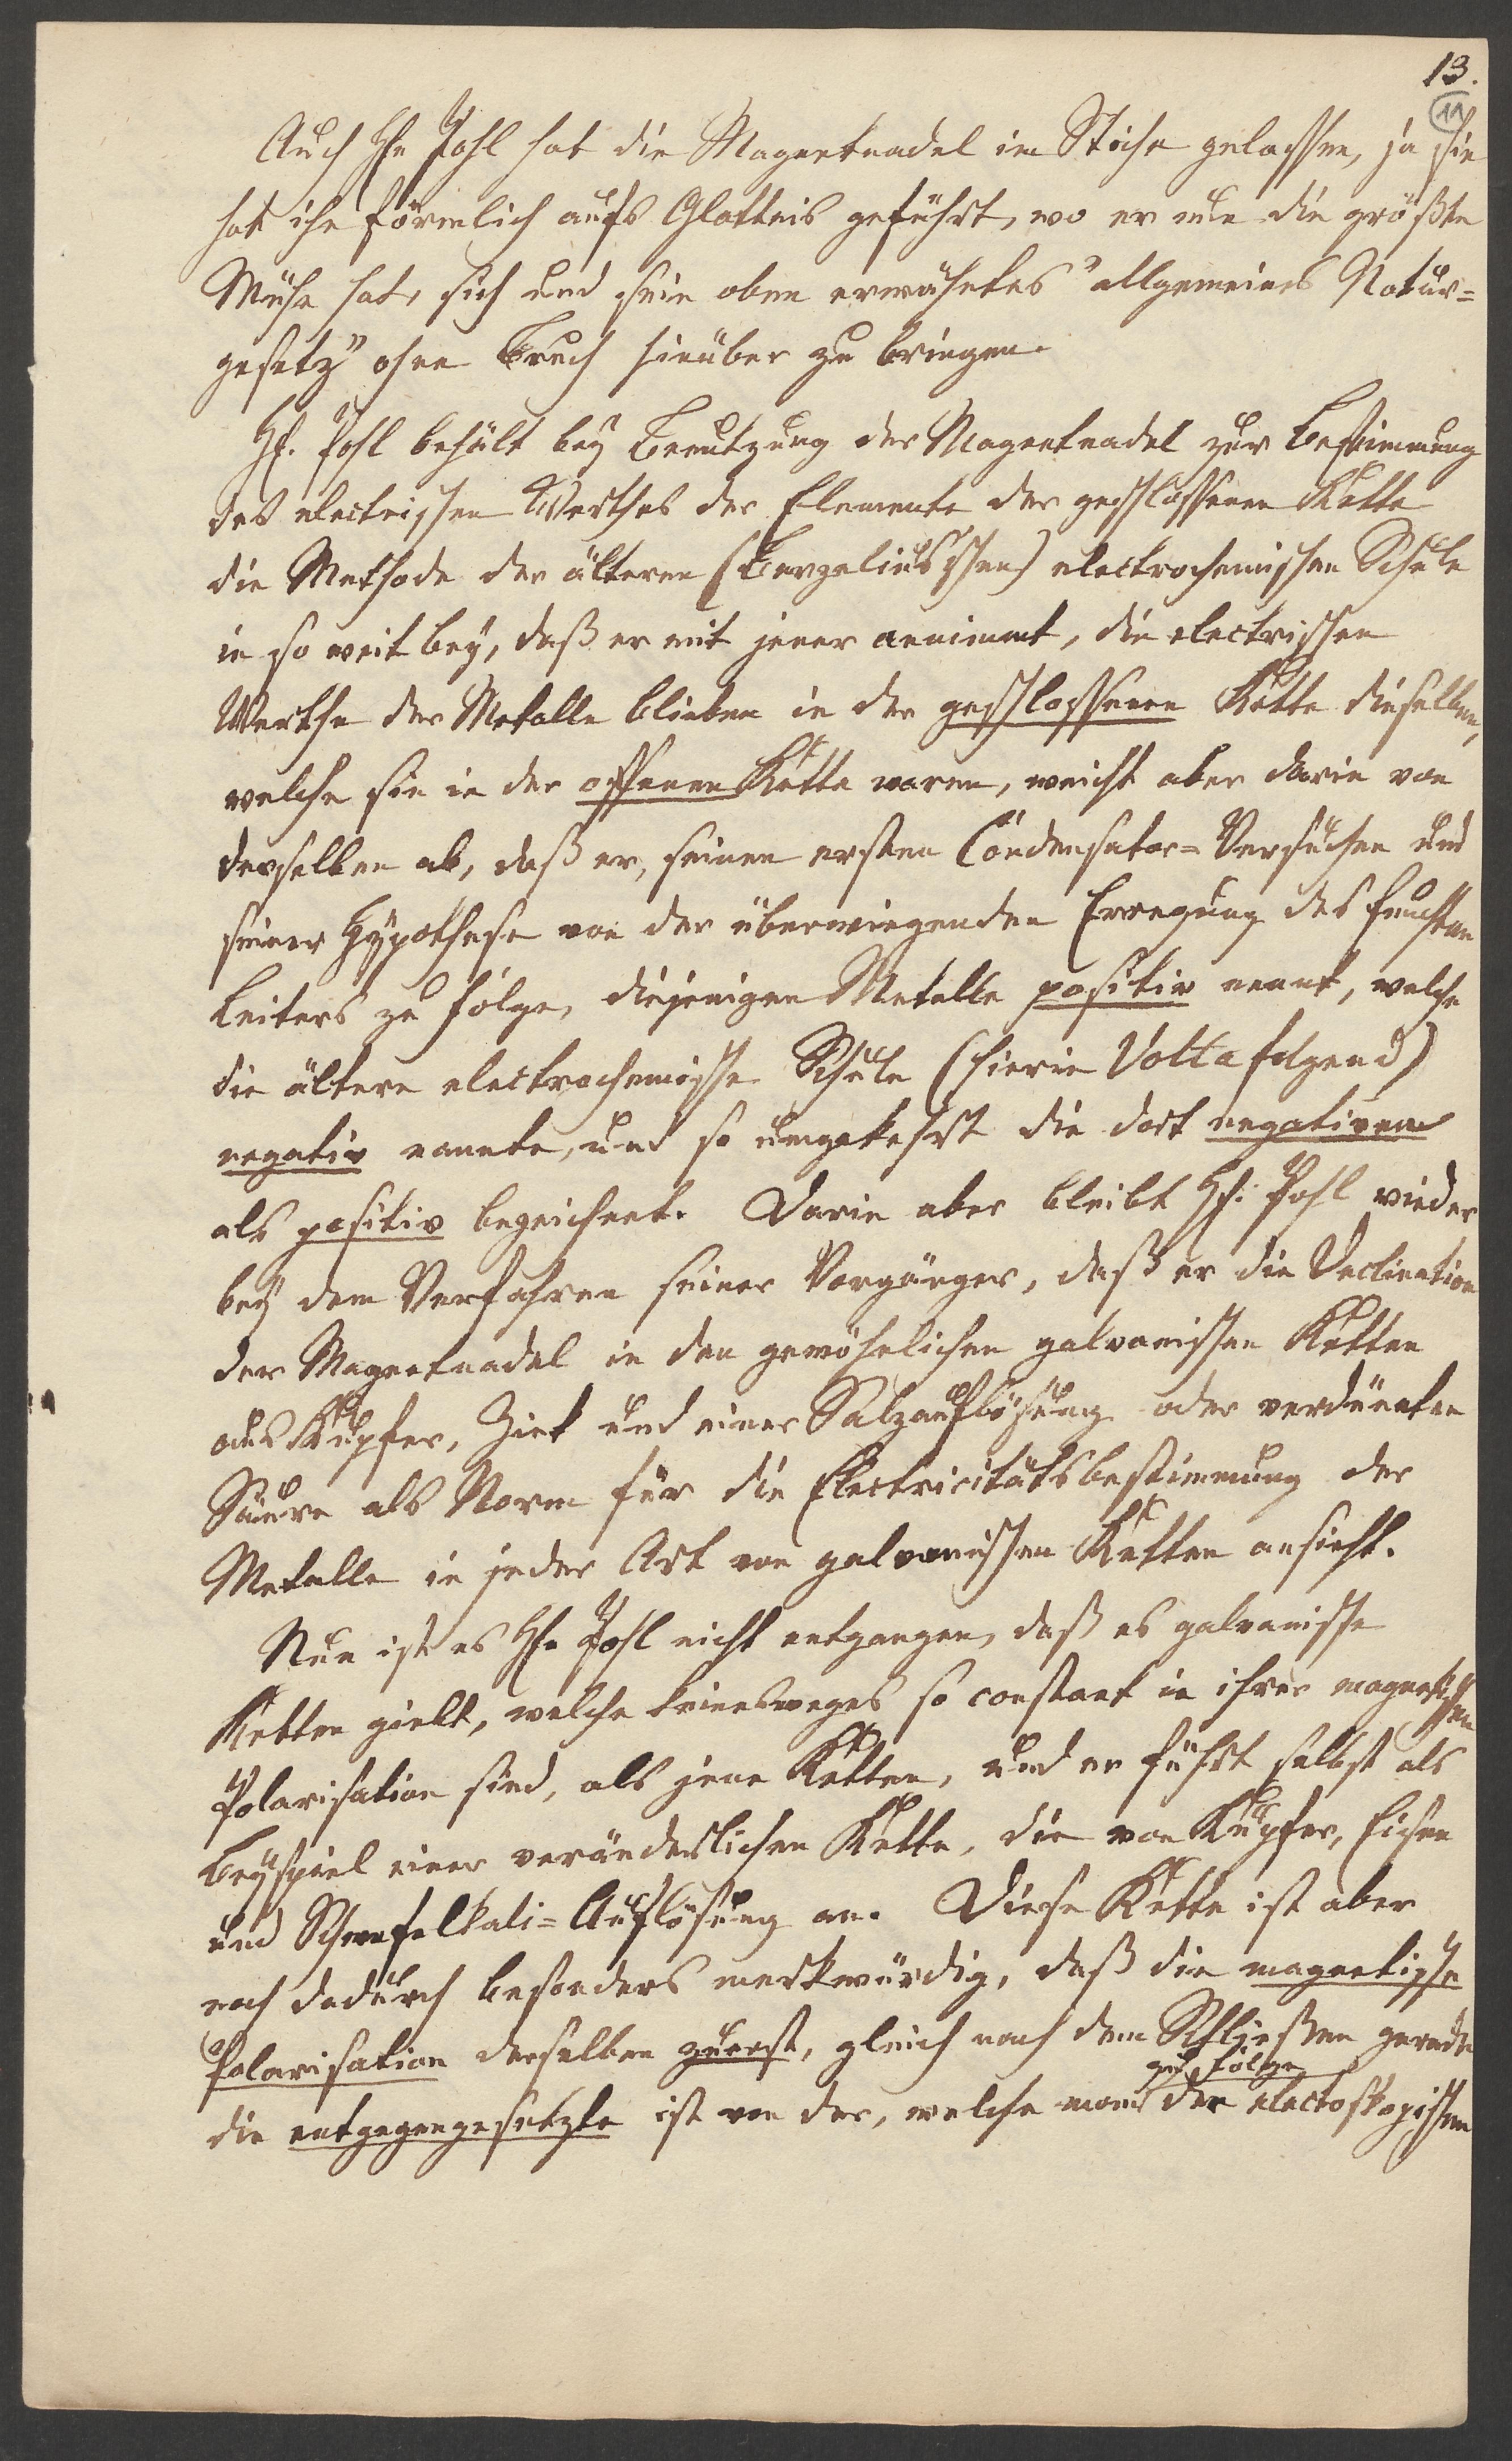 13.
11
Auch Hr Pohl hat die Magnetnadel im Stiche gelassen, ja sie
hat ihn förmlich aufs Glatteis geführt, wo er nun die größte
Mühe hat, sich und sein oben erwähntes "allgemeines Natur=
gesetz" ohne Bruch hinüber zu bringen.
Hr. Pohl behält bey Benutzung der Magnetnadel zur Bestimmung
des electrischen Werthes der Elemente der geschlossenen Kette
die Methode der älteren (Berzelius'schen) electrochemischen Schule
in so weit bey, daß er mit jener annimmt, die electrischen
Werthe der Metalle blieben in der geschlossenen Kette dieselben,
welche sie in der offenen Kette waren, weicht aber darin von
derselben ab, daß er, seinen ersten Condensator=Versuchen und
seiner Hypothese von der überwiegenden Erregung des feuchten
Leiters zu folge, diejenigen Metalle positiv nennt, welche
die ältere electrochemische Schule (hierin Volta folgend)
negativ nannte, und so umgekehrt die dort negativen
als positiv bezeichnet. Darin aber bleibt Hr. Pohl wieder
bey dem Verfahren seiner Vorgänger, daß er die Declination
der Magnetnadel in den gewöhnlichen galvanischen Ketten
aus Kupfer, Zink und einer Salzauflösung oder verdünnten
Säure als Norm für die Electricitätsbestimmung der
Metalle in jeder Art von galvanischen Ketten ansieht.
Nun ist es Hr Pohl nicht entgangen, daß es galvanische
Ketten giebt, welche keinesweges so constant in ihrer magnetischen
Polarisation sind, als jene Ketten, und er führt selbst als
Beyspiel einer veränderlichen Kette, die von Kupfer, Eisen
und Schwefelkali=Auflösung an. Diese Kette ist aber
noch dadurch besonders merkwürdig, daß die magnetische
Polarisation derselben zuerst, gleich nach dem Schließen gerade
zu folge
die entgegengesetzte ist von der, welche man der electroskopischen